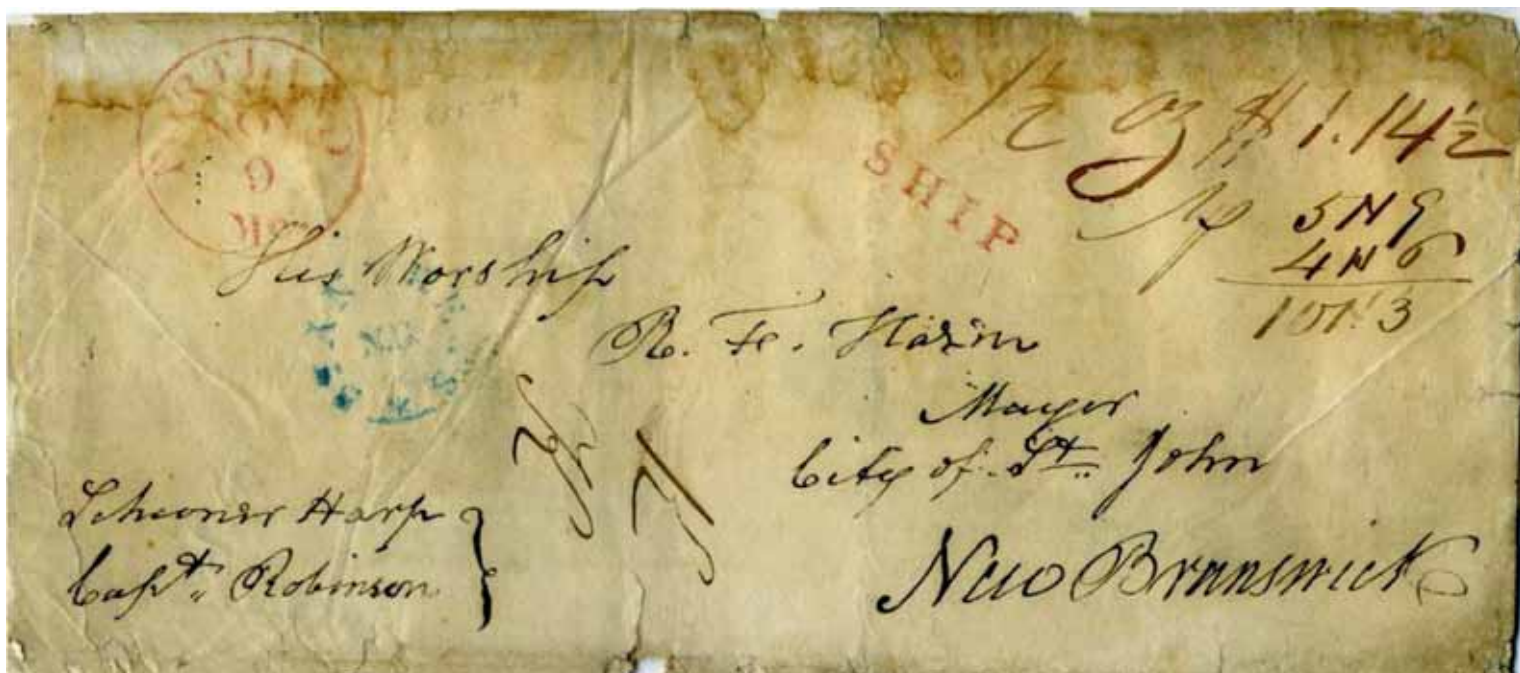 PORTLAND
NOV
9
Me.
SHIP
1/2 oz $1.14 1/2
5N9
4N6
10N3
His Worship
R. F. Hazen
Mayor
City of St. John
New Brunswick
Schooner Harp
Capt. Robinson